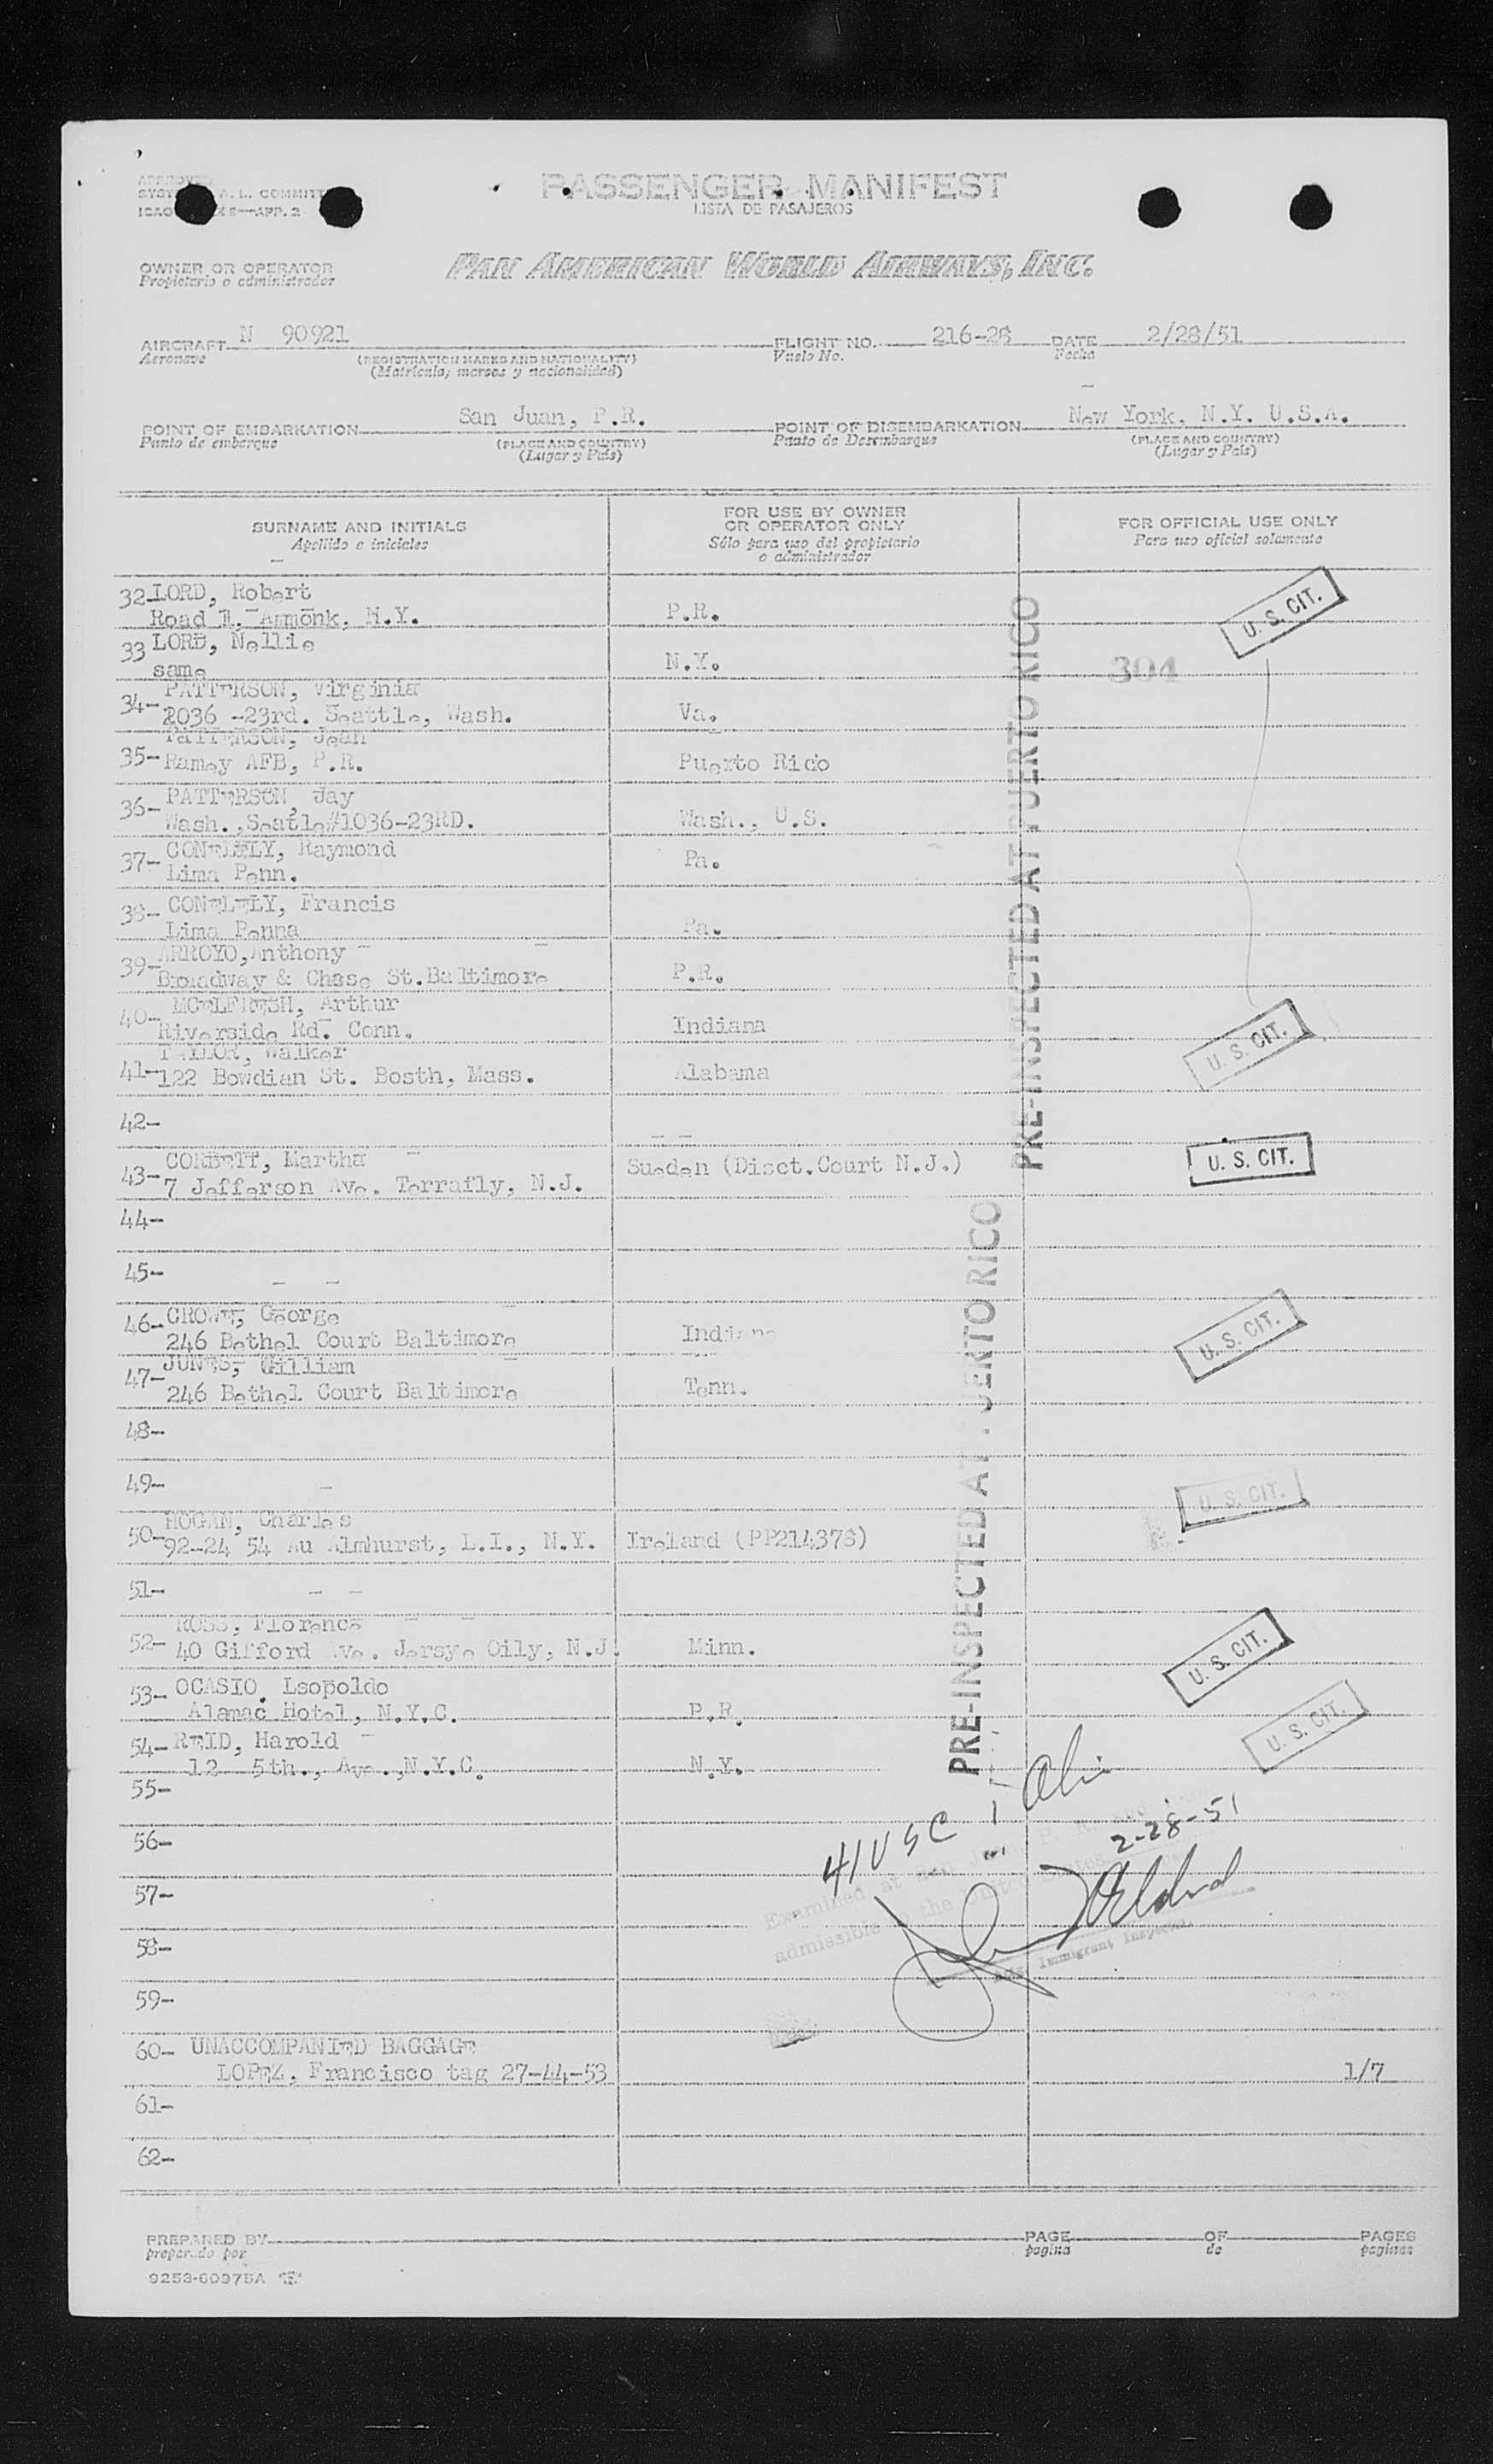 PASSENGER MANIFEST
LISTA DE PASAJEROS
OWNER OR OPERATOR
Propietario o administrador
PAN AMERICAN WORLD AIRWAYS, INC.
AIRCRAFT N 90921 FLIGHT NO. 216-28 DATE 2/28/51
Aeronave (REGISTRATION MARKS AND NATIONALITY) Vuelo No. Fecha
(Matricula; marcas y nacionalidad)
POINT OF EMBARKATION San Juan, P.R. POINT OF DISEMBARKATION New York, N.Y. U.S.A.
Punto de embarque (PLACE AND COUNTRY) Punto de Desembarque (PLACE AND COUNTRY)
(Lugar y País) (Lugar y País)
SURNAME AND INITIALS FOR USE BY OWNER OR OPERATOR ONLY FOR OFFICIAL USE ONLY
Apellido e iniciales Sólo para uso del propietario o administrador Para uso oficial solamente
32 LORD, Robert
Road 1, Armonk, N.Y. P.R. U. S. CIT.
33 LORD, Nellie
same N.Y. 304
34- PATTERSON, Virginia
2036 -23rd. Seattle, Wash. Va.
35- PATTERSON, Jean
Ramey AFB, P.R. Puerto Rico
36- PATTERSON, Jay
Wash.,Seatle#1036-23RD. Wash., U.S.
37- CONELELY, Raymond
Lima Penn. Pa.
38- CONELELY, Francis
Lima Penna Pa.
39- ARROYO,Anthony
Broadway & Chase St.Baltimore P.R.
40- MCELFRESH, Arthur
Riverside Rd. Conn. Indiana U. S. CIT.
41- TAYLOR, Walker
122 Bowdian St. Bosth, Mass. Alabama
42-
43- CORBETT, Martha
7 Jefferson Ave. Terrafly, N.J. Sueden (Disct.Court N.J.) U. S. CIT.
44-
45-
46- CROWE, George
246 Bethel Court Baltimore Indiana U. S. CIT.
47- JONES, William
246 Bethel Court Baltimore Tenn.
48-
49-
50- HOGAN, Charles U. S. CIT.
92-24 54 Au Almhurst, L.I., N.Y. Ireland (PP214378)
51-
52- ROSS, Florence
40 Gifford Ave. Jersye Oily, N.J. Minn. U. S. CIT.
53- OCASIO, Lsopoldo
Alamac Hotel, N.Y.C. P.R. U. S. CIT.
54- REID, Harold
12 5th., Ave.,N.Y.C. N.Y.
PRE-INSPECTED AT PUERTO RICO
PRE-INSPECTED AT PUERTO RICO
55-
56-
41 USC
2-28-51
57-
Examined at San Juan, P. R. and
admissible to the United States
Immigrant Inspector
58-
59-
60- UNACCOMPANIED BAGGAGE
LOPEZ, Francisco tag 27-44-53 1/7
61-
62-
PREPARED BY PAGE OF PAGES
preparado por pagina de paginas
9253-60375A "E"